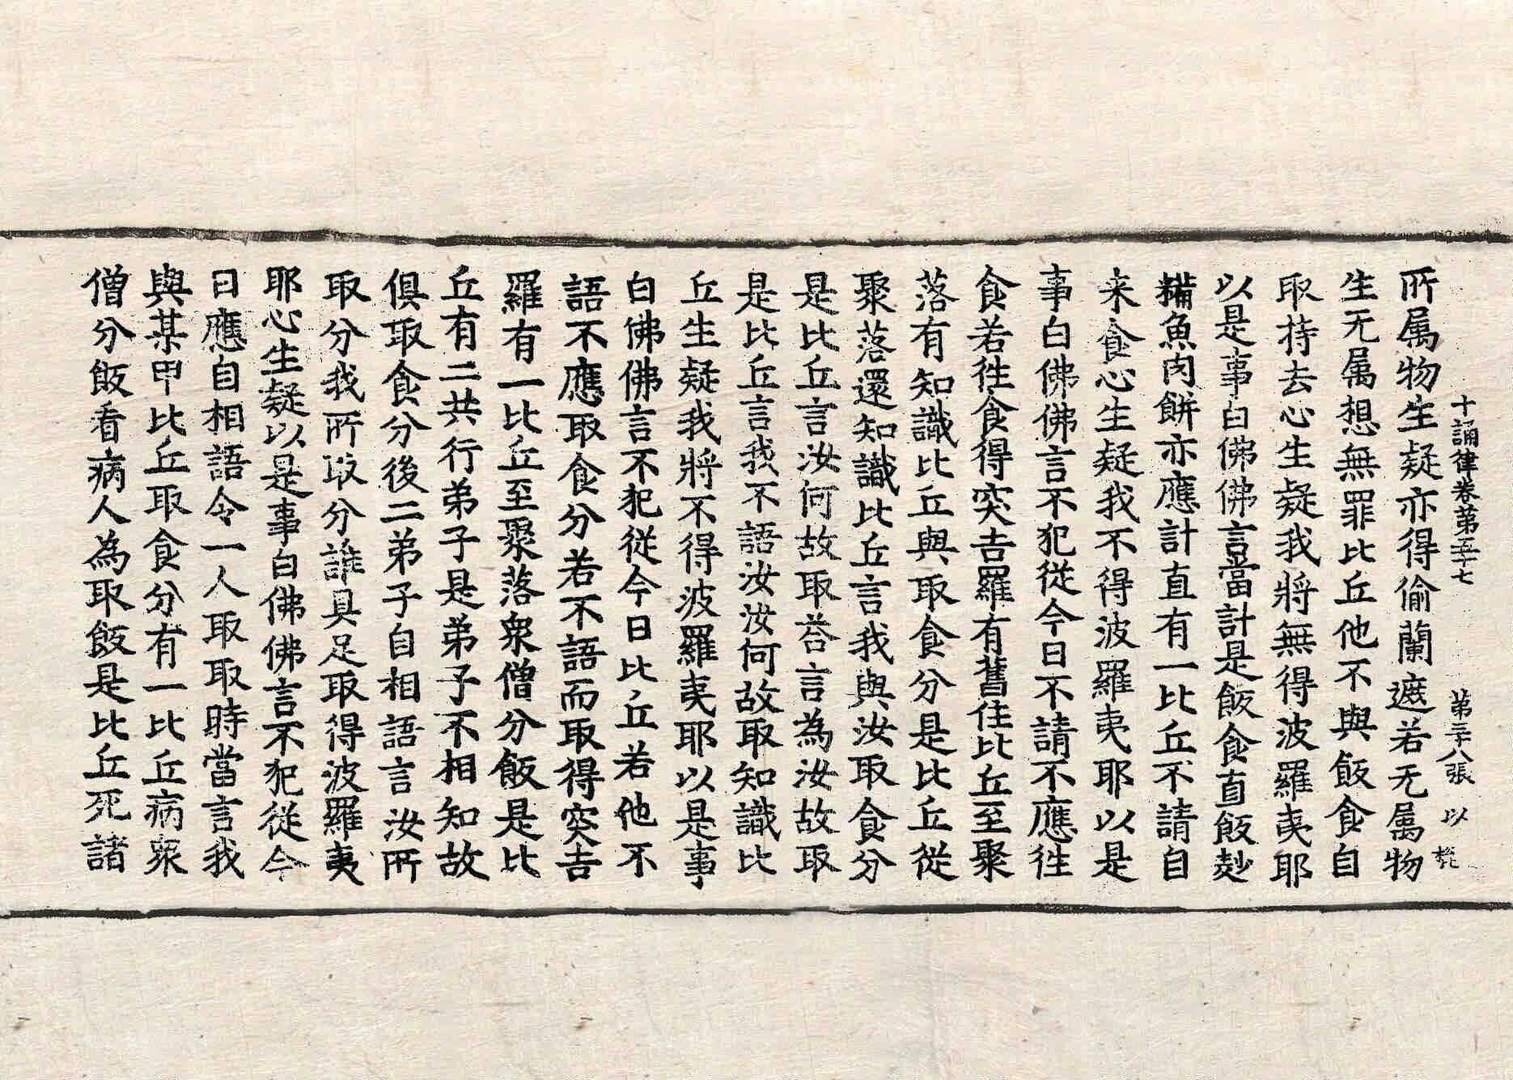 十誦律卷第五十七 第二十八張 以
所属物生疑亦得偷蘭遮若无属物
生无属想無罪比丘他不與飯食自
取持去心生疑我將無得波羅夷耶
以是事白佛佛言當計是飯食直飯麨
糒魚肉餅亦應計直有一比丘不請自
来食心生疑我不得波羅夷耶以是
事白佛佛言不犯從今日不請不應往
食若往食得突吉羅有舊住比丘至聚
落有知識比丘與取食分是比丘從
聚落還知識比丘言我與汝取食分
是比丘言汝何故取荅言為汝故取
是比丘言我不語汝汝何故取知識比
丘生疑我將不得波羅夷耶以是事
白佛佛言不犯從今日比丘若他不
語不應取食分若不語而取得突吉
羅有一比丘至聚落衆僧分飯是比
丘有二共行弟子是弟子不相知故
俱取食分後二弟子自相語言汝所
取分我所取分誰具足取得波羅夷
耶心生疑以是事白佛佛言不犯從今
日應自相語令一人取取時當言我
與某甲比丘取食分有一比丘病衆
僧分飯看病人為取飯是比丘死諸